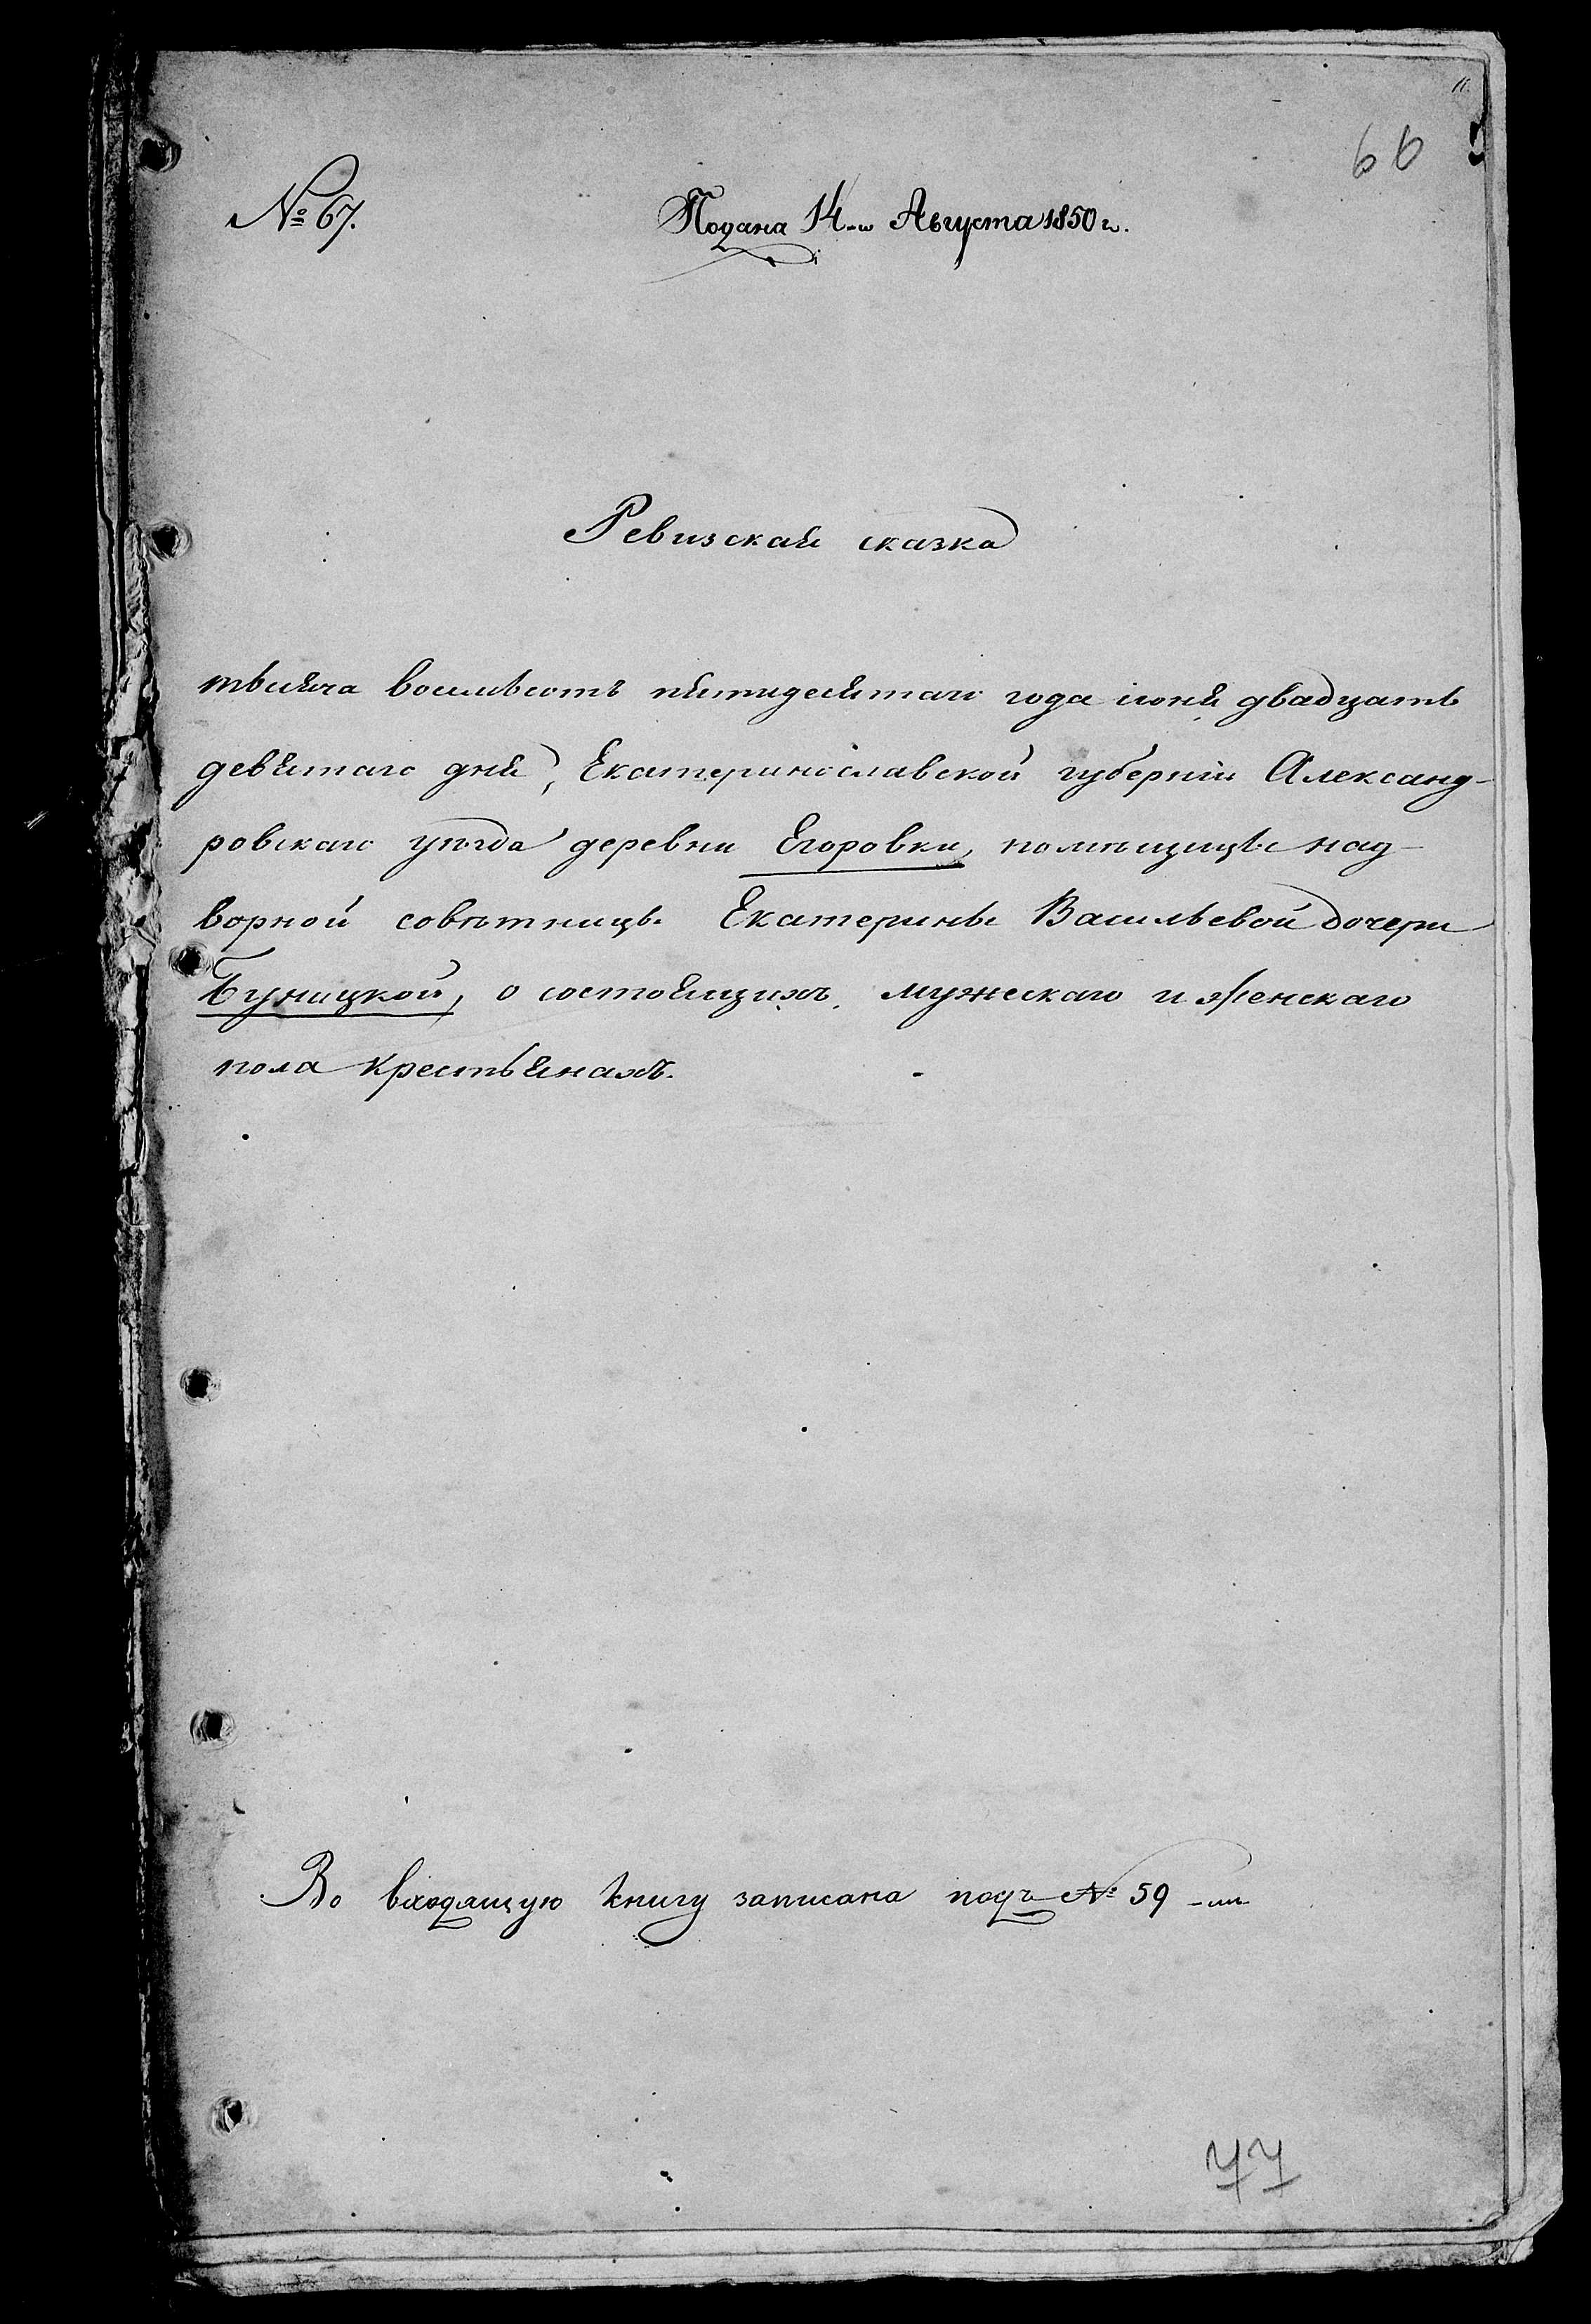 66
№ 67.
Подана 14-го Августа 1850 г.
Ревизская сказка
тысяча восемьсотъ пятидесятаго года іюня двадцать
девятаго дня, Екатеринославской губерніи Александ-
ровскаго уѣзда деревни Егоровки, помѣщицы над-
ворной совѣтницы Екатерины Васильевой дочери
Буницкой, о состоящихъ мужескаго и женскаго
пола крестьянахъ.
Во входящую книгу записана подъ № 59-мъ
77